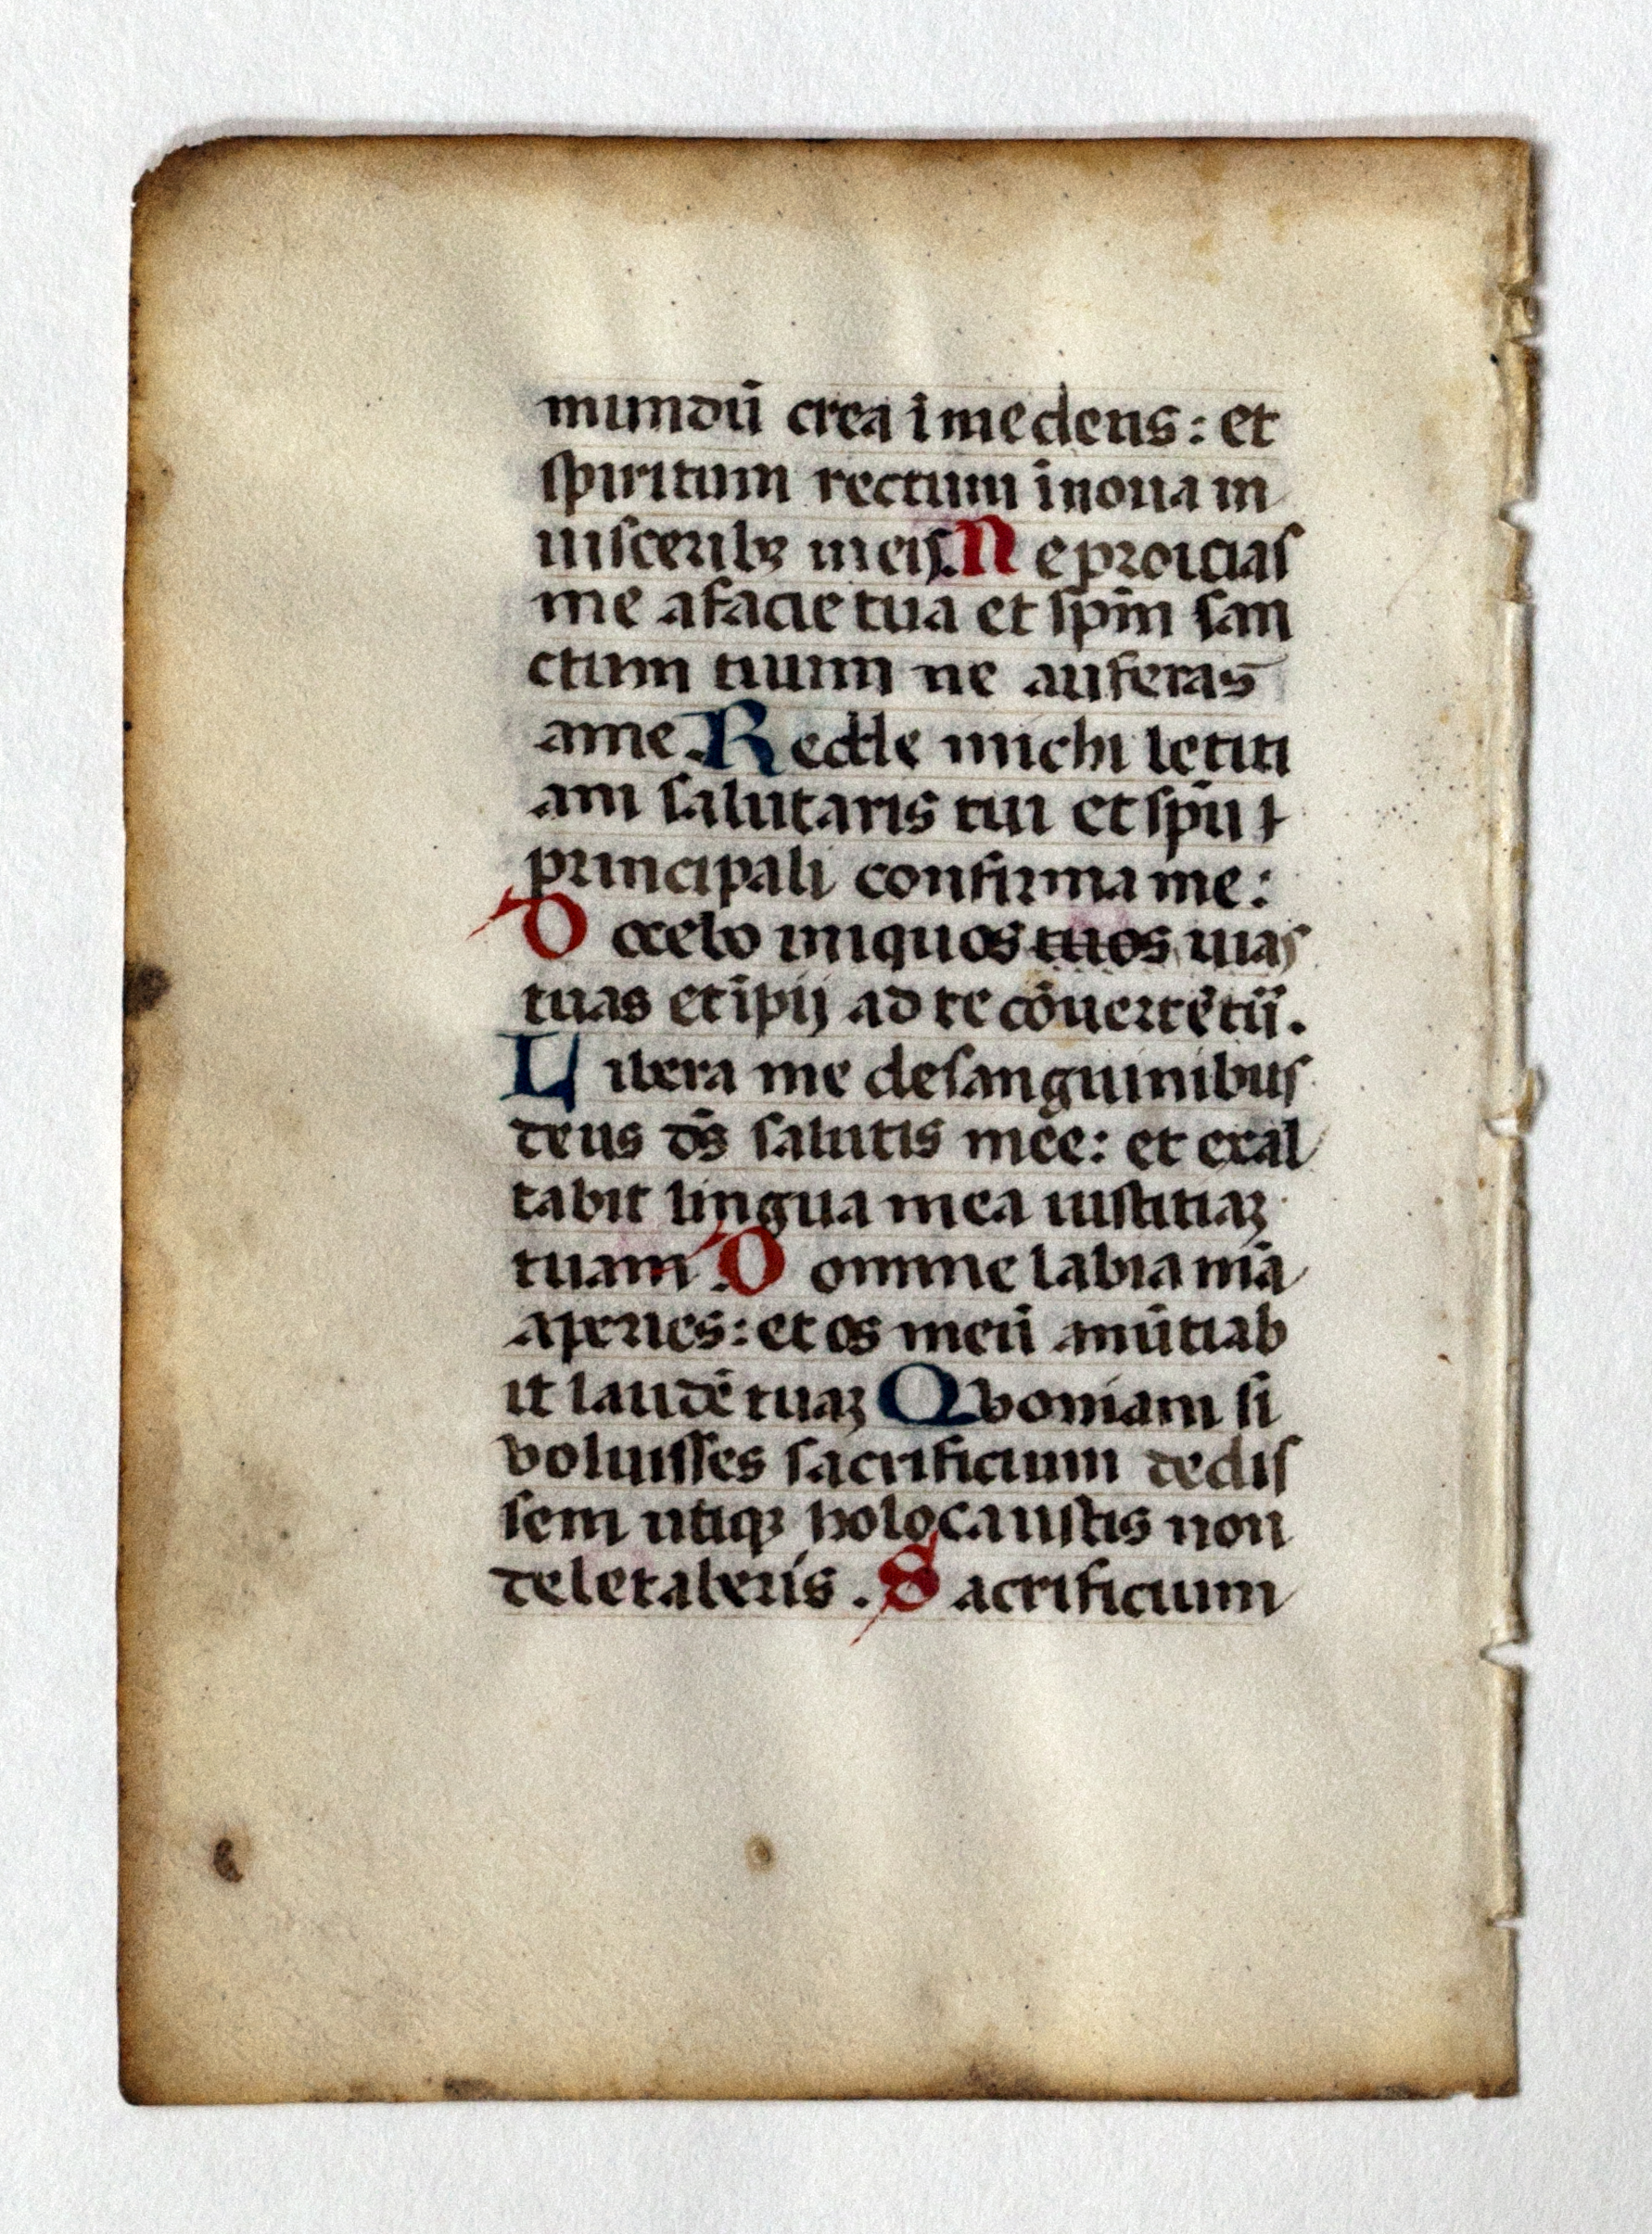 mundū crea ī me deus : et
spiritum rectum inoua in
uiscerib; meis. Ne proicias
me a facie tua et spm̄ san
ctum tuum ne auferas
a me. Redde michi letiti
am salutaris tui et spū
principali confirma me :
Docebo iniquos tuos uias
tuas et ipij ad te cōuertētū.
Libera me de sanguinibus
deus ds̄ salutis mee : et exal
tabit lingua mea iustitiaꝫ
tuam. Domine labia mā
aperies : et os meū anūtiab
it laudē tuaꝫ Quoniam si
voluisses sacrificium dedis
sem utiqꝫ holocaustis non
deletaberis. Sacrificium